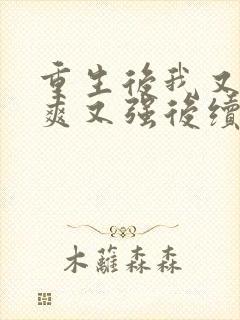 重生後我又
爽又强後續
木蘿森森